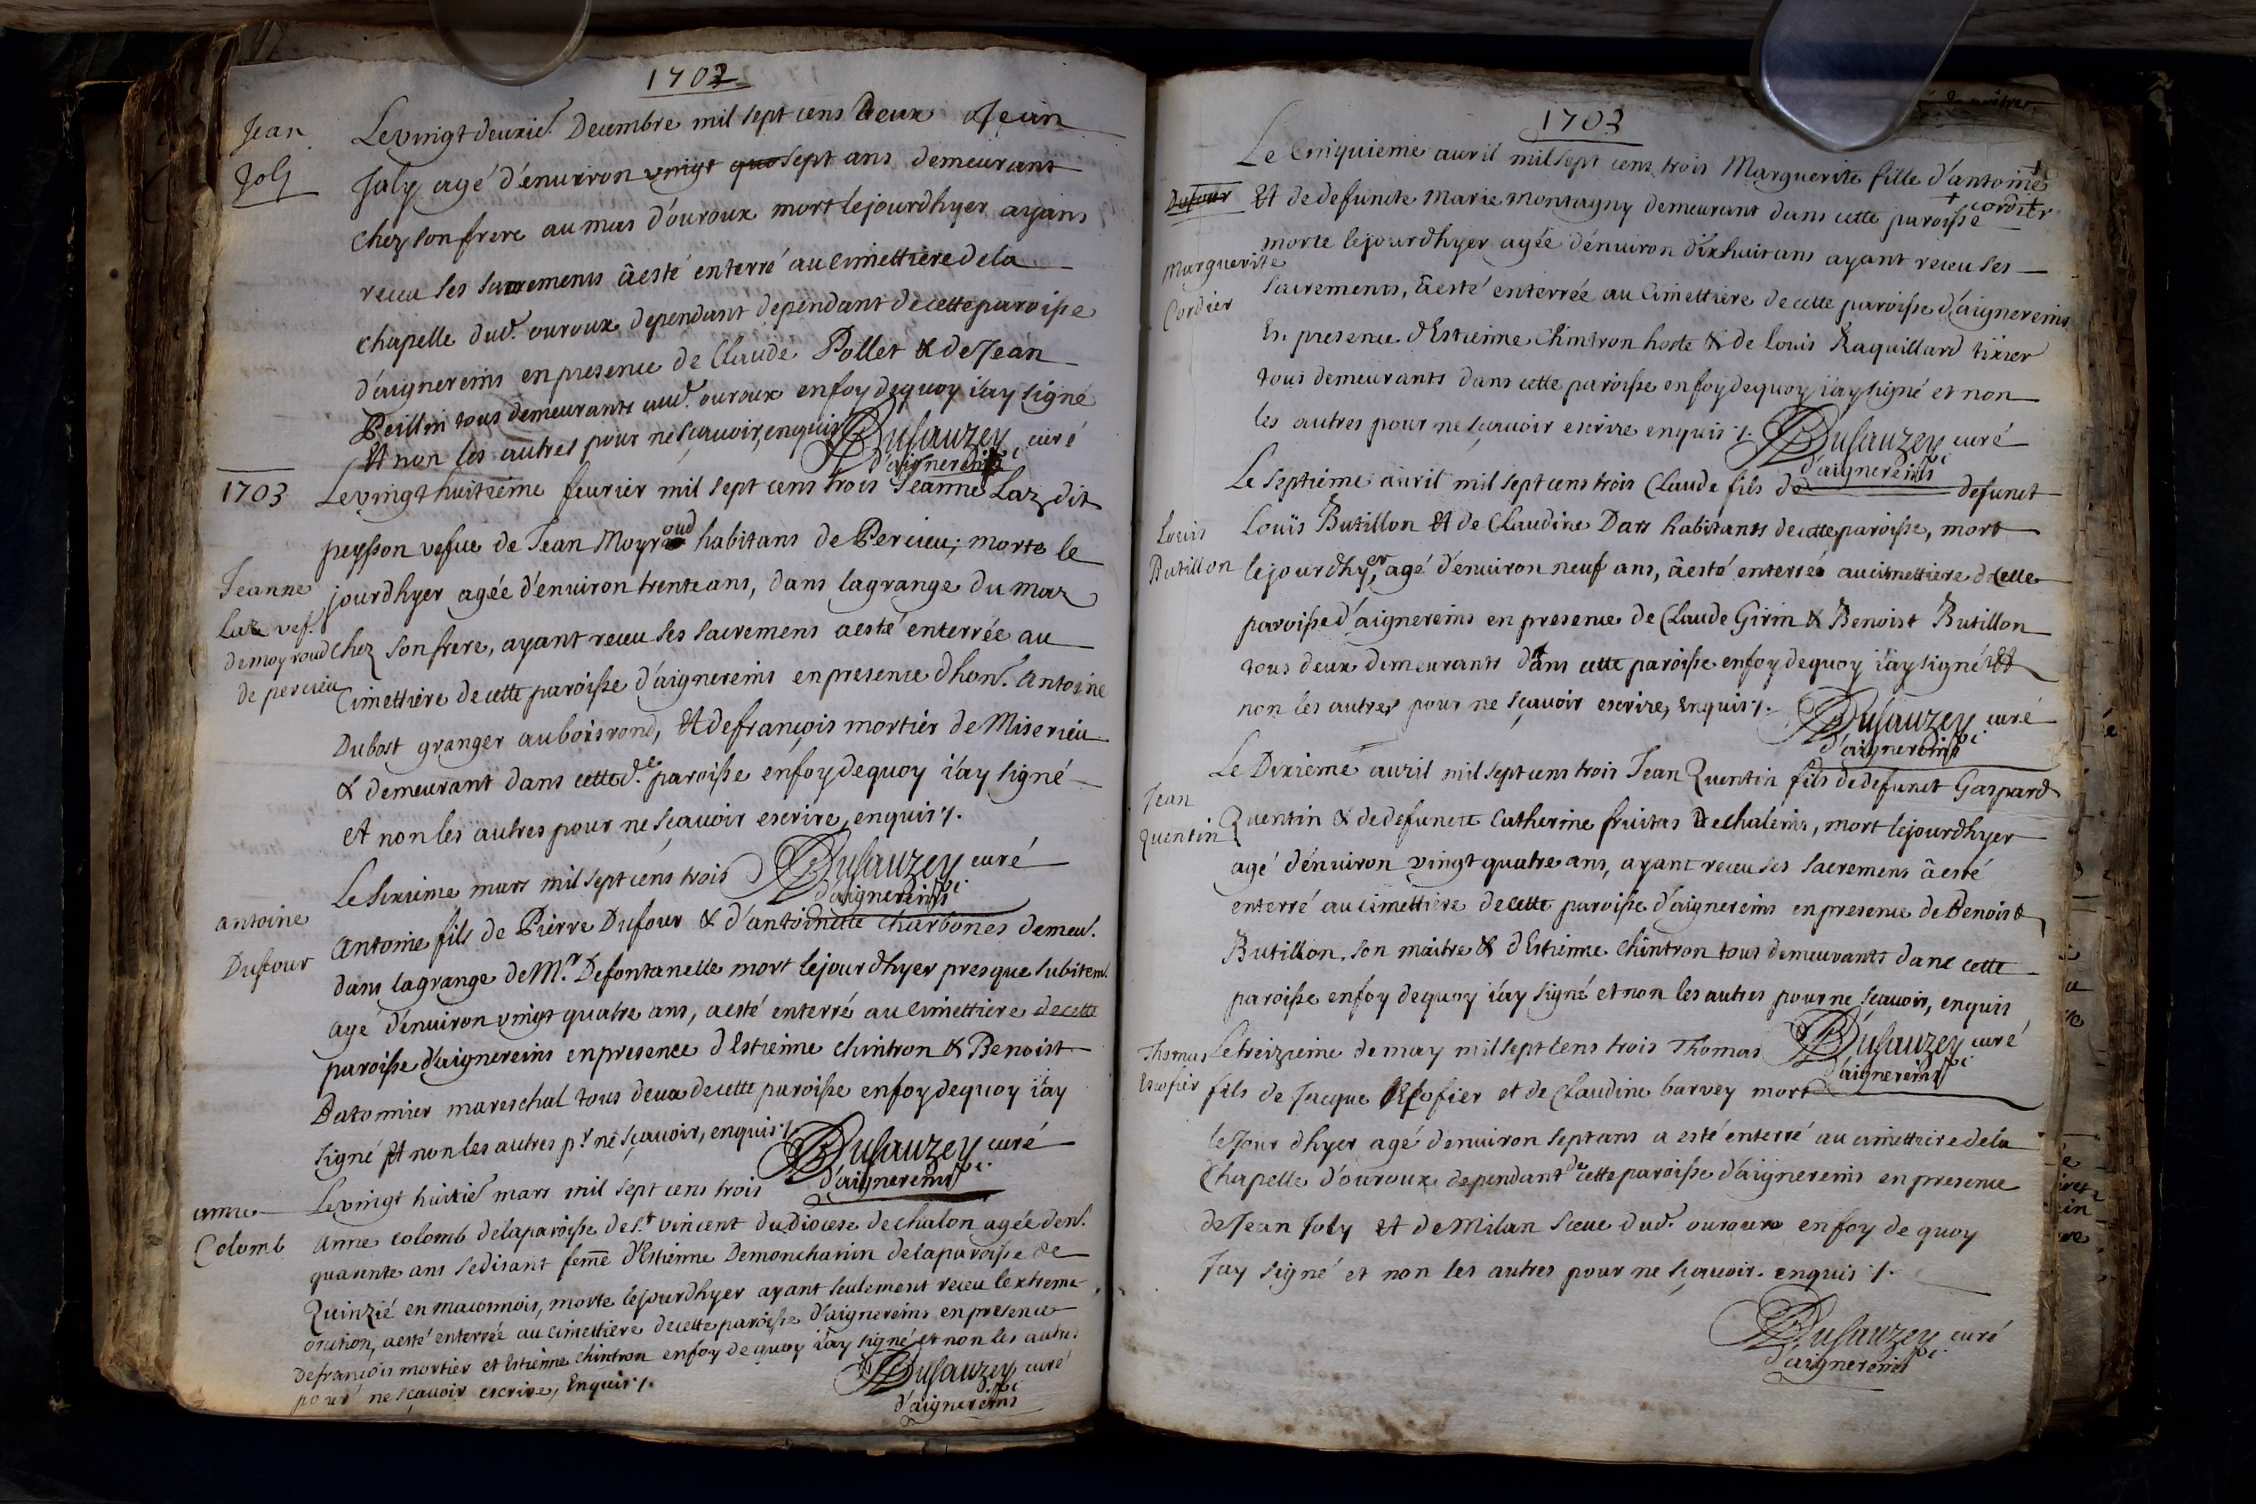 1702
Jean
Joly
Le vingt deuxie. Decembre mil sept cens deux Jean
Joly agé d'énuiron vingt sept ans demeurant
chez son frere au mas d'ouroux mort le jourdhyer ayans
receu ses sacremens â esté enterré au cimettiere de la
chapelle dud. ouroux dependant dependant de cette paroisse
d'aignereins en presence de Claude Pollet & de Jean
Peillin tous demeurants aud. ouroux en foy de quoy i'ay signé
Et non les autres pour ne sçauoir, enquis
Dusauzey curé
d'aignereins
1703
Le vingt huitième feurier mil sept cens trois Jeanne Laz dit
peysson vefue de Jean Moyroud habitans de Percieu; morte le
Jeanne
Laz vef.
de moyroud
de percieu
jourdhyer agée d'énuiron trente ans, dans la grange du maz
chez son frere, ayant receu ses sacremens a esté enterrée au
Cimettiére de cette paroisse d'aignereins en presence d'hon. Antoine
Dubost granger au bois rond, Et de françois mortier de Miserieu
& demeurant dans cette d.e paroisse en foy de quoy i'ay signé
et non les autres pour ne sçauoir escrire, enquis /.
Dusauzey curé
d'aignereins
Le sixieme mars mil sept cens trois
antoine
Dufour
Antoine fils de Pierre Dufour & d'antoinette Charbones demeu.
dans la grange de M.r Defontanelle mort le jourdhyer presque subitem.
agé d'énuiron vingt quatre ans, a esté enterré au cimettiere de cette
paroisse d'aignereins en presence d'Estienne chintron & Benoist
Batonnier mareschal tous deux de cette paroisse en foy de quoy i'ay
signé Et non les autres p.r ne sçauoir, enquis /.
Dusauzey curé
d'aignereins
Le vingt huitie. mars mil sept cens trois
anne
Colomb
Anne colomb de la paroisse de s.t vincent du diocese de chalon agée d'en.
quarente ans se disant feme d'Estienne Demoncharin de la paroisse de
Quinzié en maconnois, morte le jourdhyer ayant seulement receu l'extreme
onction, a esté enterrée au cimettiere de cette paroisse d'aignereins en presence
de françois mortier et Estienne chintron en foy de quoy i'ay signé et non les autres
pour ne sçauoir escrire, Enquis /.
Dusauzey curé
d'aignereins
1703
Le Cinquieme auril mil sept cens trois Marguerite fille d'antoine
cordier
Dufour
Et de defuncte Marie Montagny demeurant dans cette paroisse
Marguerite
Cordier
morte le jourdhyer agée d'énuiron dixhuit ans ayant receu ses
sacremens, â esté enterrée au Cimettiere de cette paroisse d'aignereins
En presence d'Estienne Chintron hoste & de Louis Raquillard tixier
tous demeurants dans cette paroisse en foy de quoy i'ay signé et non
les autres pour ne sçauoir escrire enquis /.
Dusauzey curé
d'aignereins
Le septieme auril mil sept cens trois Claude fils de defunct
Louis
Butillon
Louïs Butillon Et de Claudine Dars habitants de cette paroisse, mort
le jourdhyer, agé d'énuiron neuf ans, â esté enterré au cimettiere de cette
paroisse d'aignereins en presence de Claude Girin & Benoist Butillon
tous deux demeurants dans cette paroisse en foy de quoy i'ay signé Et
non les autres pour ne sçauoir escrire, Enquis /.
Dusauzey curé
d'aignereins
Le Dixieme auril mil sept cens trois Jean Quentin fils de defunct Gaspard
Jean
Quentin
Quentin & de defuncte Catherine fruitas de chaleins, mort le jourdhyer
agé d'énuiron vingt quatre ans, ayant receu ses sacremens â esté
enterré au cimettiere de cette paroisse d'aignereins en presence de Benoist
Butillon, son maitre & d'Estienne Chintron tous demeurants dans cette
paroisse en foy de quoy i'ay signé et non les autres pour ne sçauoir, enquis
Dusauzey curé
d'aignereins
Thomas
Escofier
Le treizieme de may mil sept cens trois Thomas
fils de Jacque Escofier et de Claudine barvey mort
le jour dhyer agé d'enuiron sept ans a esté enterré au cimettiere de la
Chapelle d'ouroux dependant de cette paroisse d'aignereins en presence
de Jean Joly Et de Milan Sceue dud. ouroux en foy de quoy
Jay signé et non les autres pour ne sçauoir. enquis /.
Dusauzey curé
d'aignereins